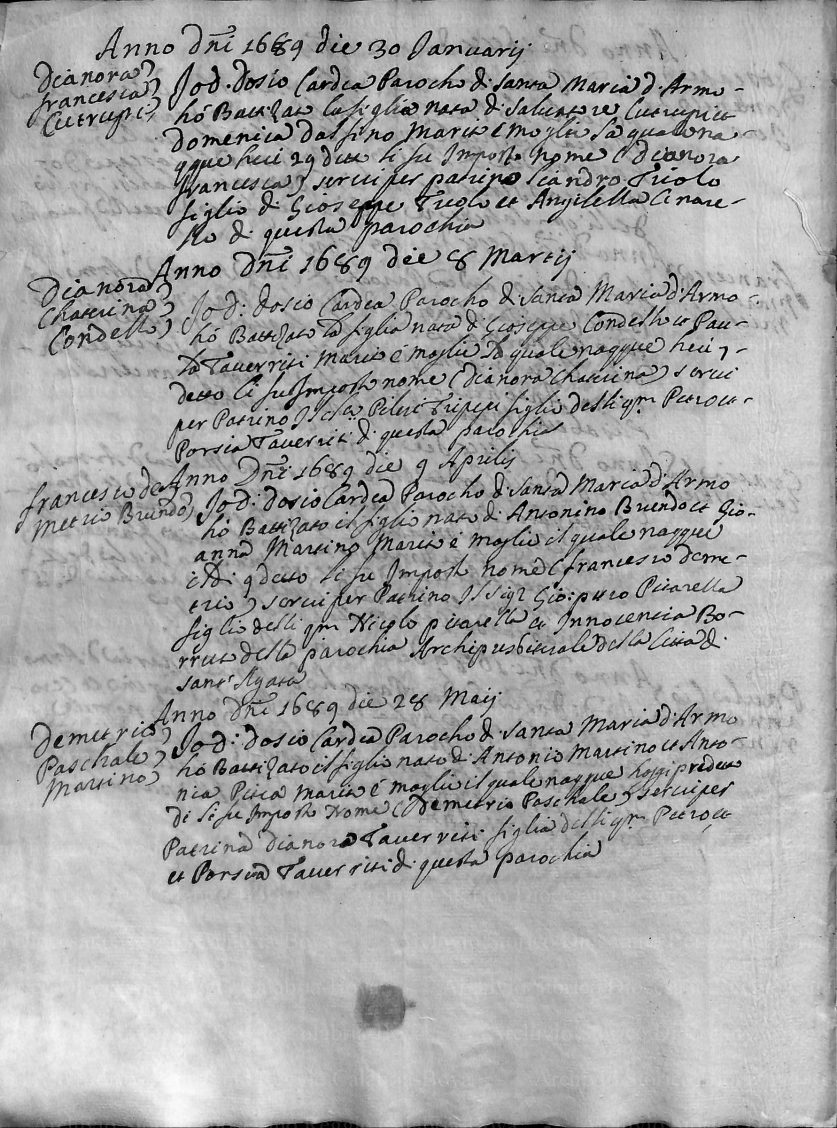 Anno Dñi 1689 die 30 Januarij
Dianora)
francesca)
Cutrupi)
Io D: dosio Cardea Parocho di Santa Maria d'Armo
hó Battizato la figlia nata di Salvatore Cutrupi et
domenica dassino Marito é moglie la quale na-
qque heri 29 detto li fu Imposto nome (dianora
francesca) servi per patrino Leandro Triolo
figlio di Gioseppe Triolo et Angilella Cinare-
llo di questa parochia
Anno Dñi 1689 die 8 Martij
Dianora)
Chaterina)
Condello)
Io D: dosio Cardea Parocho di Santa Maria d'Armo
hó Battizato la figlia nata di Gioseppe Condello et Pau-
la Taverriti Marito é moglie la quale naqque heri 7
detto li fu Imposto nome (dianora Chaterina) servi
per Patrino Tripipi figlio delli qm Pietro et
Porsia Taverriti di questa parochia
Anno Dñi 1689 die 9 Aprilis
francesco de
metrio Brundo)
Io D: dosio Cardea Parocho di Santa Maria d'Armo
hó Battizato il figlio nato di Antonino Brundo et Gio-
anna Martino Marito é moglie il quale naqque
il di 9 detto li fu Imposto nome (francesco deme-
trio) servi per Patrino Il sigr Gio: petro Pitarella
figlio delli qm Nicolo pitarella et Innocentia Bo-
rruto della parochia Archipresbiterale della Citta di
Sant' Agata
Anno Dñi 1689 die 28 Maij
Demetrio)
Paschale)
Martino)
Io D: dosio Cardea Parocho di Santa Maria d'Armo
hó Battizato il figlio nato di Antonio Martino et Anto-
nia Pitea Marito é moglie il quale naqque hoggi predetto
di li fu Imposto Nome (Demetrio Paschale) servi per
Patrina dianora Taverriti figlia delli qm Pietro et
et Porsia Taverriti di questa parochia